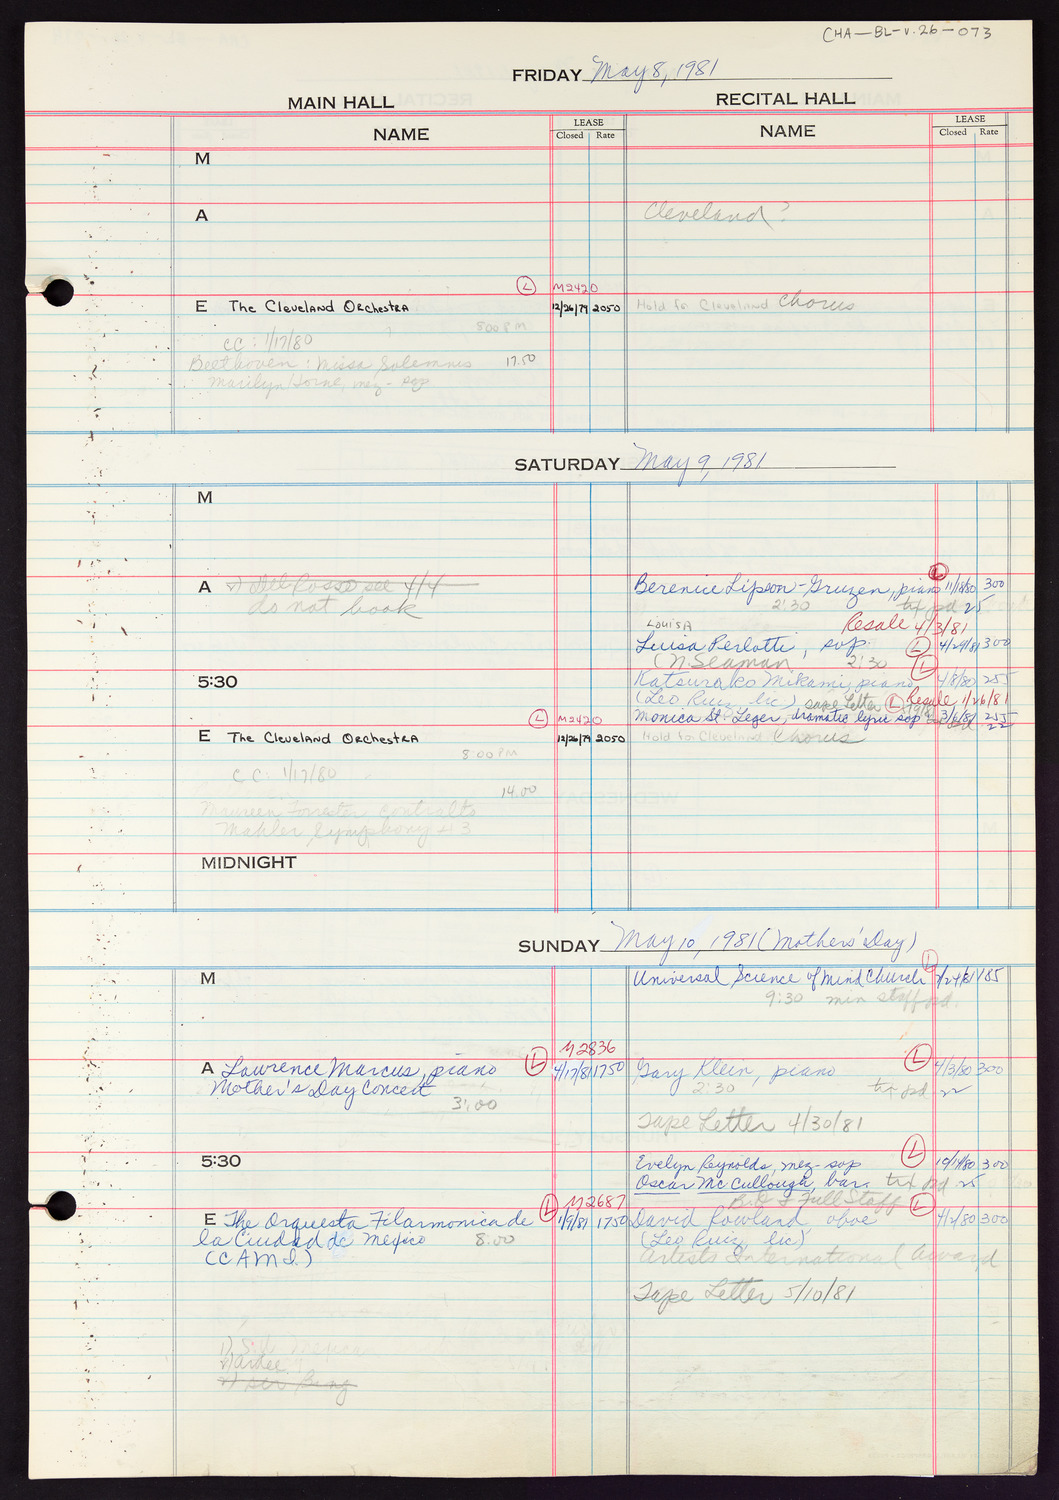 CHA-BL-V.26-073
FRIDAY May 8, 1981
MAIN HALL
RECITAL HALL
NAME
LEASE
Closed Rate
NAME
LEASE
Closed Rate
M
A
Cleveland?
L M2420
E The Cleveland Orchestra 12/26/79 2050
Hold for Cleveland Chorus
8:00 PM
CC: 1/17/80
Beethoven: Missa Solemnis 17.50
Marilyn Horne, mez-sop
SATURDAY May 9, 1981
M
A
see 4/4
do not book
L
Berenice Lipson-Gruzen, piano 11/18/80 300
2:30 txt pd 25
Resale 4/3/81
Louisa
Luisa Perlotti, sop L 4/29/81 300
(N. Seaman 2:30 L
5:30
Katsurako Mikami, piano 4/8/80 255
(Leo Ruiz, lic) Tape Letter L Resale 1/26/81
Monica St. Leger, dramatic lyric sop 3/6/81 255
L M2420
E The Cleveland Orchestra 12/26/79 2050
Hold for Cleveland Chorus
8:00 PM
CC: 1/17/80
14.00
Maureen Forrester, contralto
Mahler Symphony #3
MIDNIGHT
SUNDAY May 10, 1981 (Mothers' Day)
M
L
Universal Science of Mind Church 2/24/81 185
9:30 min staff pd.
M2836
A Lawrence Marcus, piano L 4/17/81 1750
Mother's Day Concert
3:00
Gary Klein, piano L 4/3/80 300
2:30 txt pd 22
Tape Letter 4/30/81
5:30
Evelyn Reynolds, mez-sop L 10/14/80 300
Oscar McCullough, bar. txt pd 25
Full Staff
M2687
E The Orquesta Filarmonica de L 1/9/81 1750
la Ciudad de Mexico 8:00
(CAMI)
David Rowland, oboe L 4/2/80 300
(Leo Ruiz, lic)
Artists International (award
Tape Letter 5/10/81